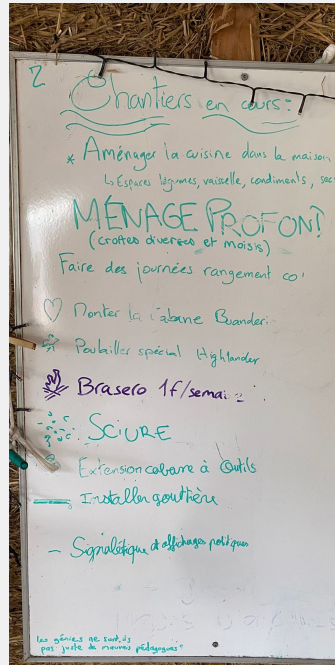 Chantiers en cours:
* Aménager la cuisine dans la maison
↳ Espaces légumes, vaisselle, condiments, sec
MÉNAGE PROFOND
(crottes diverses et moisis)
Faire des journées rangement co
♡ Monter la cabane Buanderi
Poulailler spécial Highlander
Brasero 1f/semai
SCIURE
Extension cabane à Outils
— Installer gouttière
— Signalétique et affichages politiques
les génies ne sont-ils
pas juste de mauvais pédagogues"